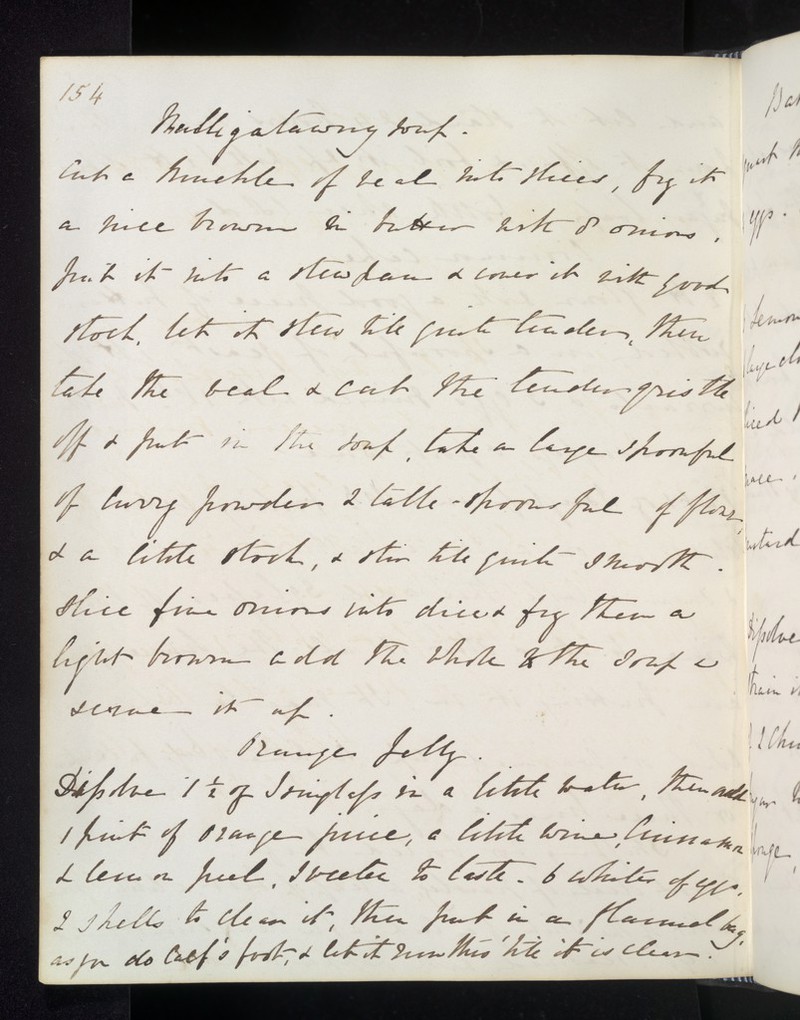 154
Mulligatawny soup.
Cut a knuckle of veal into slices, fry it
a nice brown in butter with 8 onions.
put it into a stewpan & cover it with good
stock, let it stew till quite tender, then
take the veal & cut the tender gristle
off & put in the soup, take a large spoonful
of curry powder 2 table-spoonsful of flour,
& a little stock, & stir till quite smooth.
slice five onions into dice & fry them a
light brown add the whole to the soup &
serve it up.
Orange Jelly.
Dissolve 1 1/2 oz Isinglass in a little water, then add
1 pint of orange juice, a little wine, Cinnamon
& lemon peel, sweeten to taste. 6 whites of eggs,
2 shells to clear it, then put in a flannel bag,
as you do Calf's foot, & let it run thro' till it is clear.
eggs.
Dissolve